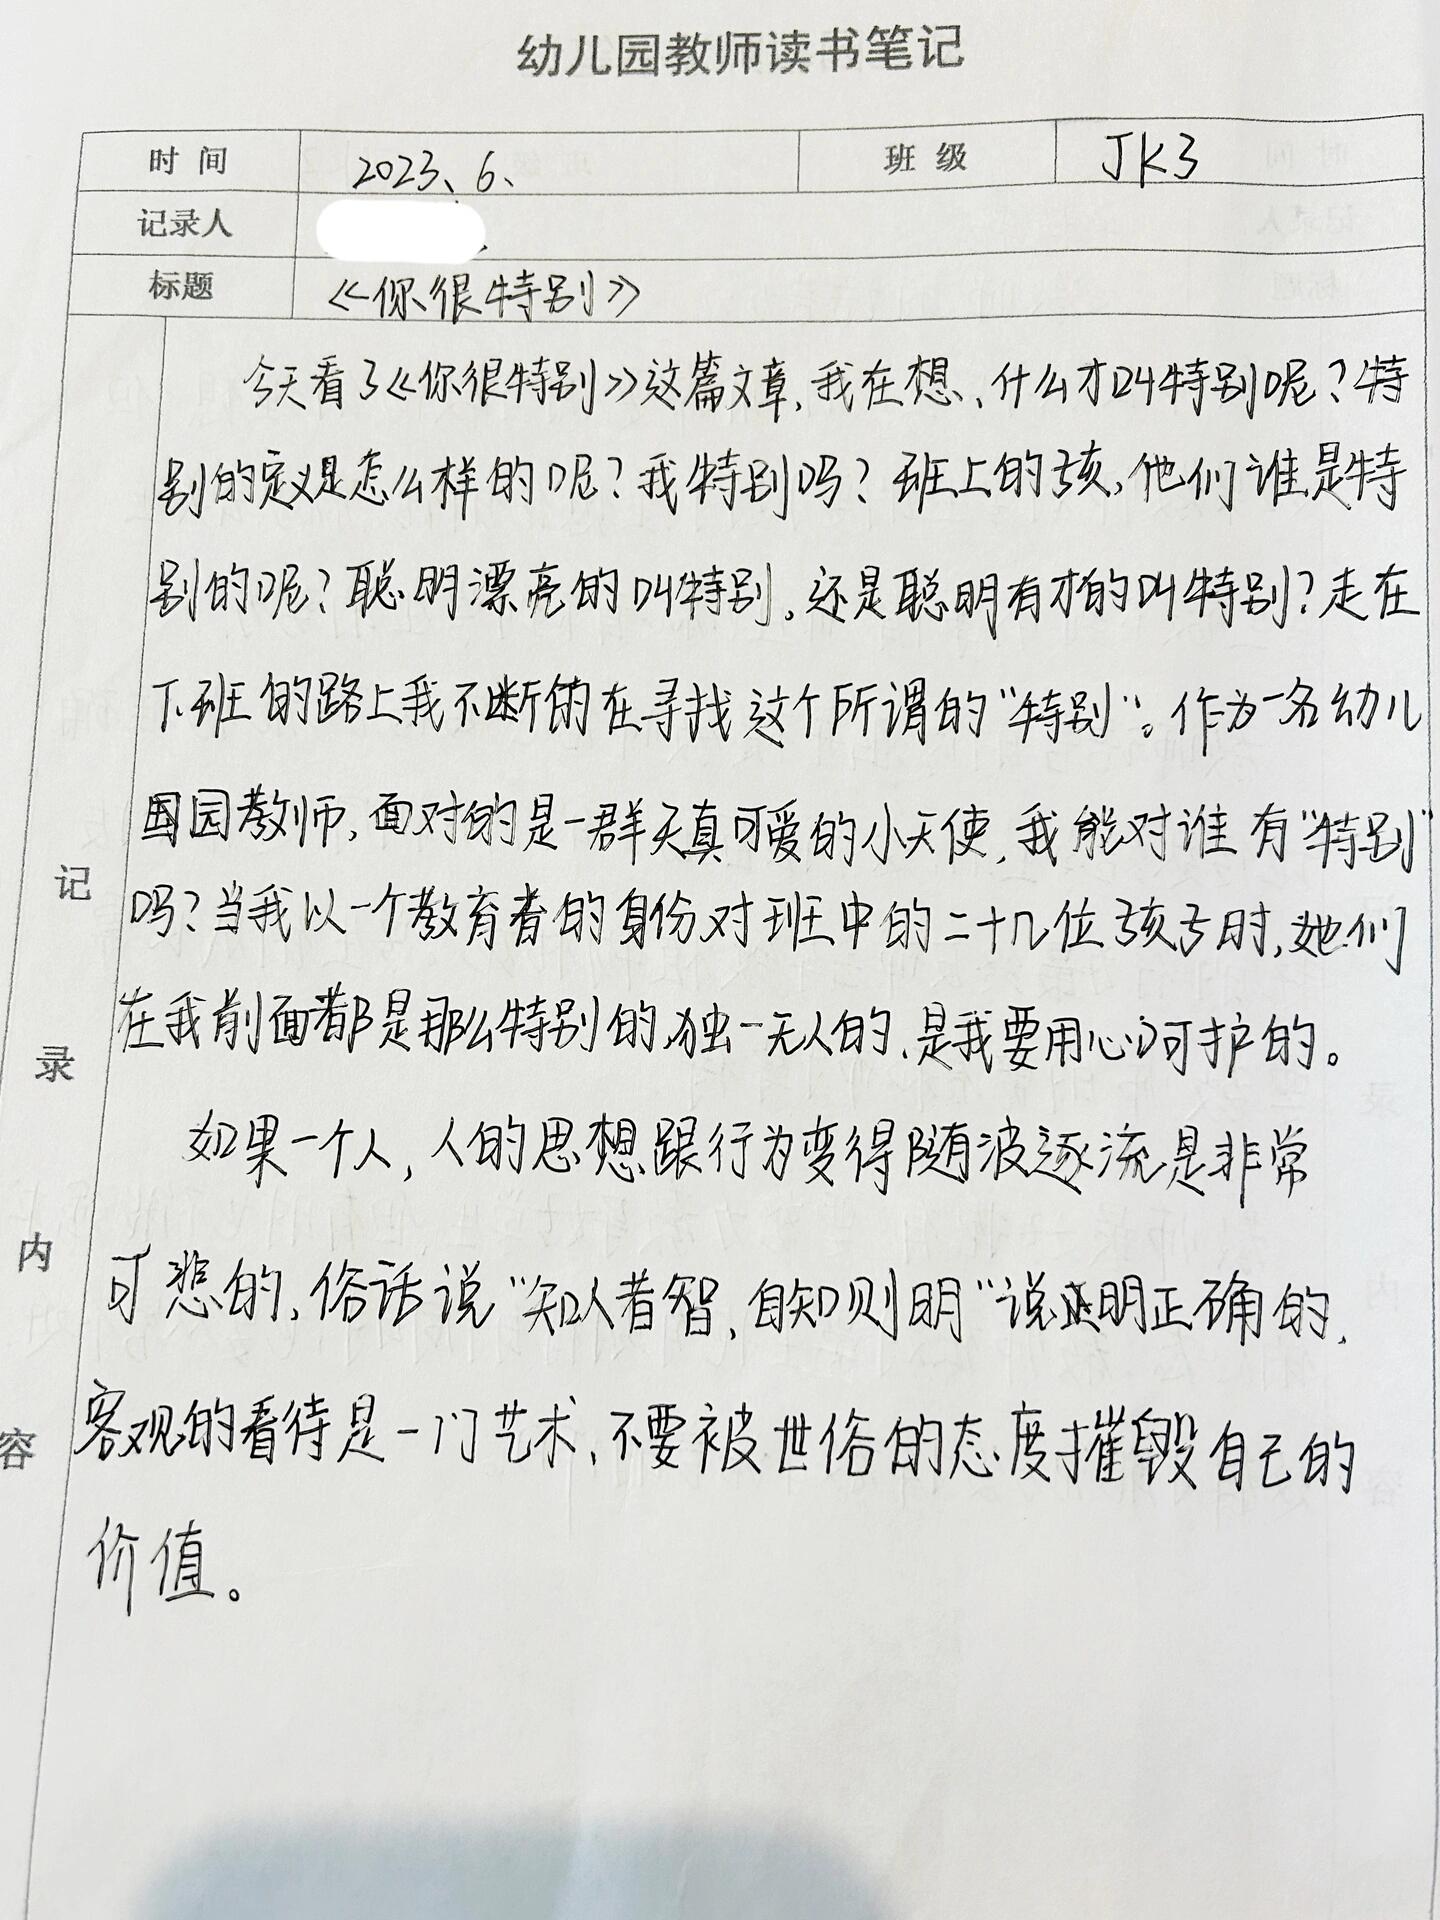 幼儿园教师读书笔记
时间 2023、6、 班级 JK3
记录人
标题 《你很特别》
记录内容
今天看了《你很特别》这篇文章,我在想、什么才叫特别呢?特
别的定义是怎么样的呢?我特别吗?班上的孩,他们谁是特
别的呢?聪明漂亮的叫特别,还是聪明有才的叫特别?走在
下班的路上我不断的在寻找这个所谓的"特别"。作为一名幼儿
园教师,面对的是一群天真可爱的小天使,我能对谁有"特别"
吗?当我以一个教育者的身份对班中的二十几位孩子时,她们
在我前面都是那么特别的,独一无人的,是我要用心呵护的。
如果一个人,人的思想跟行为变得随波逐流是非常
可悲的,俗话说"知人者智,自知则明"说明正确的,
客观的看待是一门艺术,不要被世俗的态度摧毁自己的
价值。